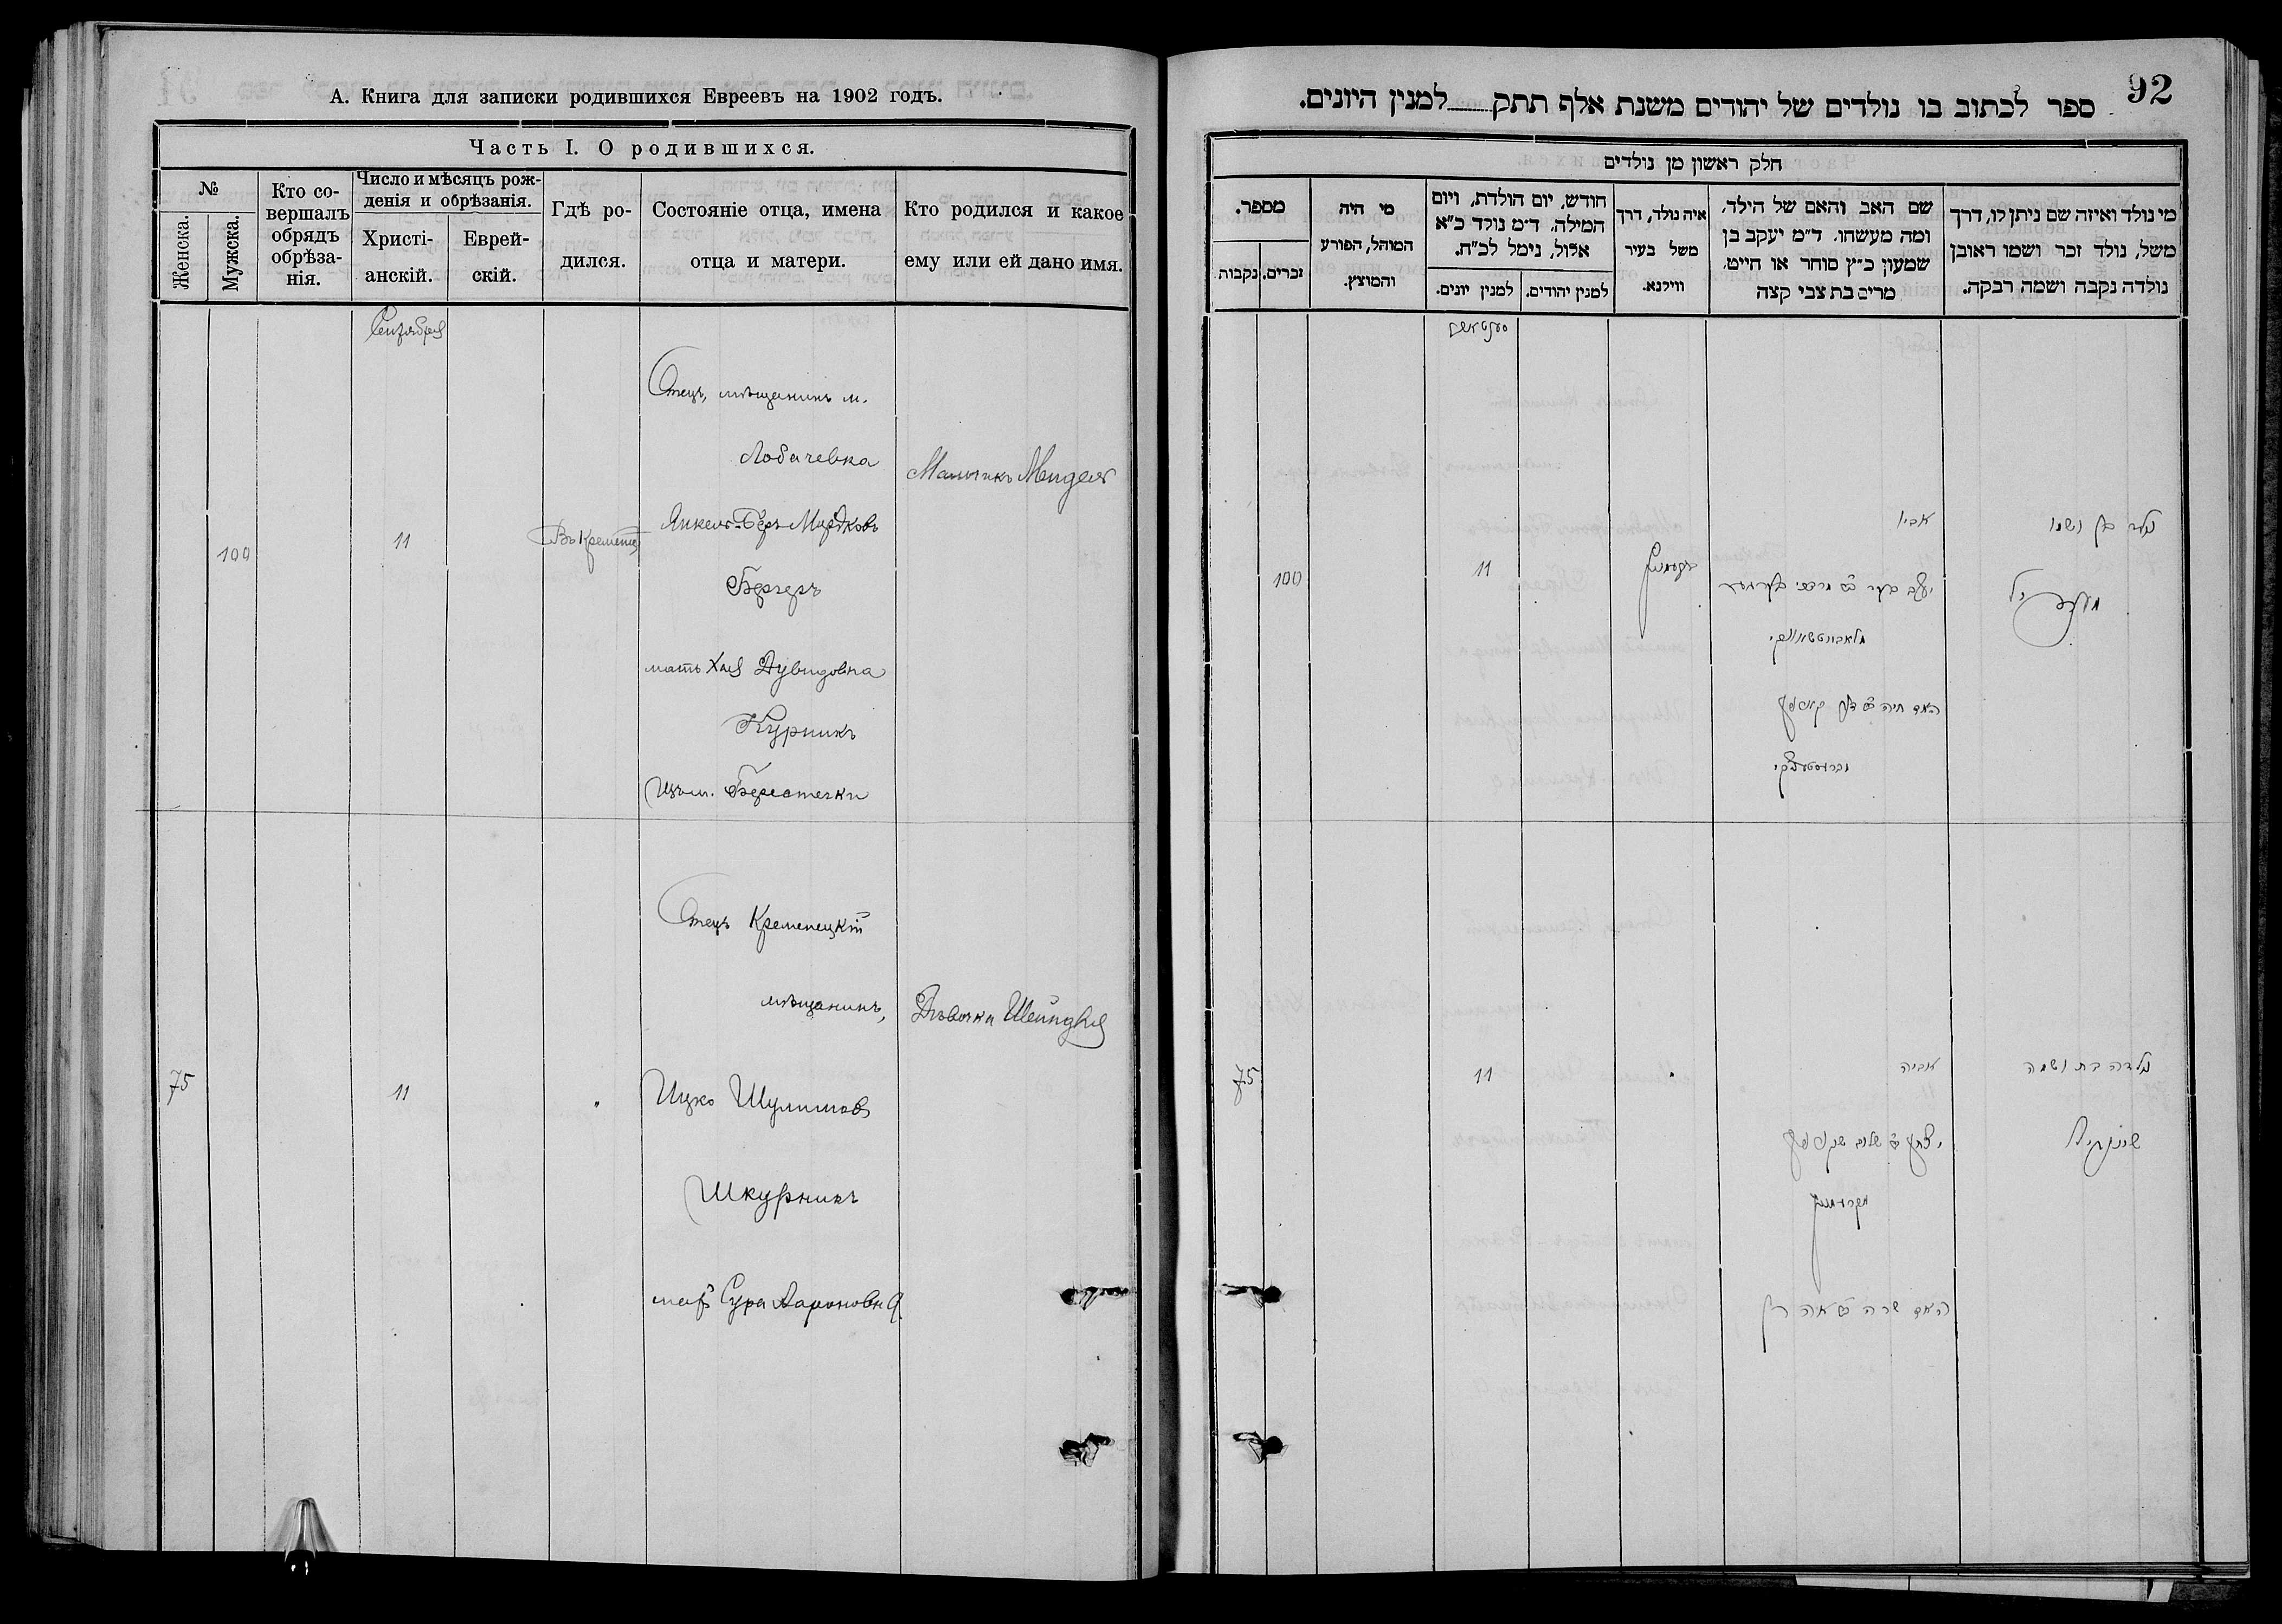 А. Книга для записки родившихся Евреевъ на 1902 годъ.
Часть I. О родившихся.
№
Женска.
Мужска.
Кто со-
вершалъ
обрядъ
обрѣза-
нія.
Число и мѣсяцъ рож-
денія и обрѣзанія.
Христі-
анскій.
Еврей-
скій.
Гдѣ ро-
дился.
Состояніе отца, имена
отца и матери.
Кто родился и какое
ему или ей дано имя.
Сентября
100
11
Въ Кременцѣ
Отецъ, мѣщанинъ м.
Лобачевка
Янкель-Беръ Мордковъ
Бергеръ
мать Хая Дувидовна
Курникъ
Изъ м. Берестечки
Мальчикъ Мендель
75
11
"
Отецъ Кременецкій
мѣщанинъ,
Ицко Шулимовъ
Шкурникъ
мать Сура Аароновна
Дѣвочка Шейндля
92
ספר לכתוב בו נולדים של יהודים משנת אלף תתק למנין היונים.
חלק ראשון מן נולדים
מי נולד ואיזה שם ניתן לו, דרך
משל, נולד זכר ושמו ראובן
נולדה נקבה ושמה רבקה.
שם האב והאם של הילד.
ומה מעשהו. ד״מ יעקב בן
שמעון כ״ץ סוחר או חייט.
מרים בת צבי קצה
איה נולד, דרך
משל בעיר
ווילנא.
חודש, יום הולדת, ויום
המילה. ד״מ נולד כ״א
אלול, נימל לכ״ח.
למנין יהודים.
למנין יונים.
מי היה
המוהל, הפורע
והמוצץ.
מספר.
זכרים.
נקבות
נולד בן ושמו
מענדיל
אביו
האם חיה
11
100
נולדה בת ושמה
שיינדיל
אביה
יצחק שלום
האם שרה
11
75